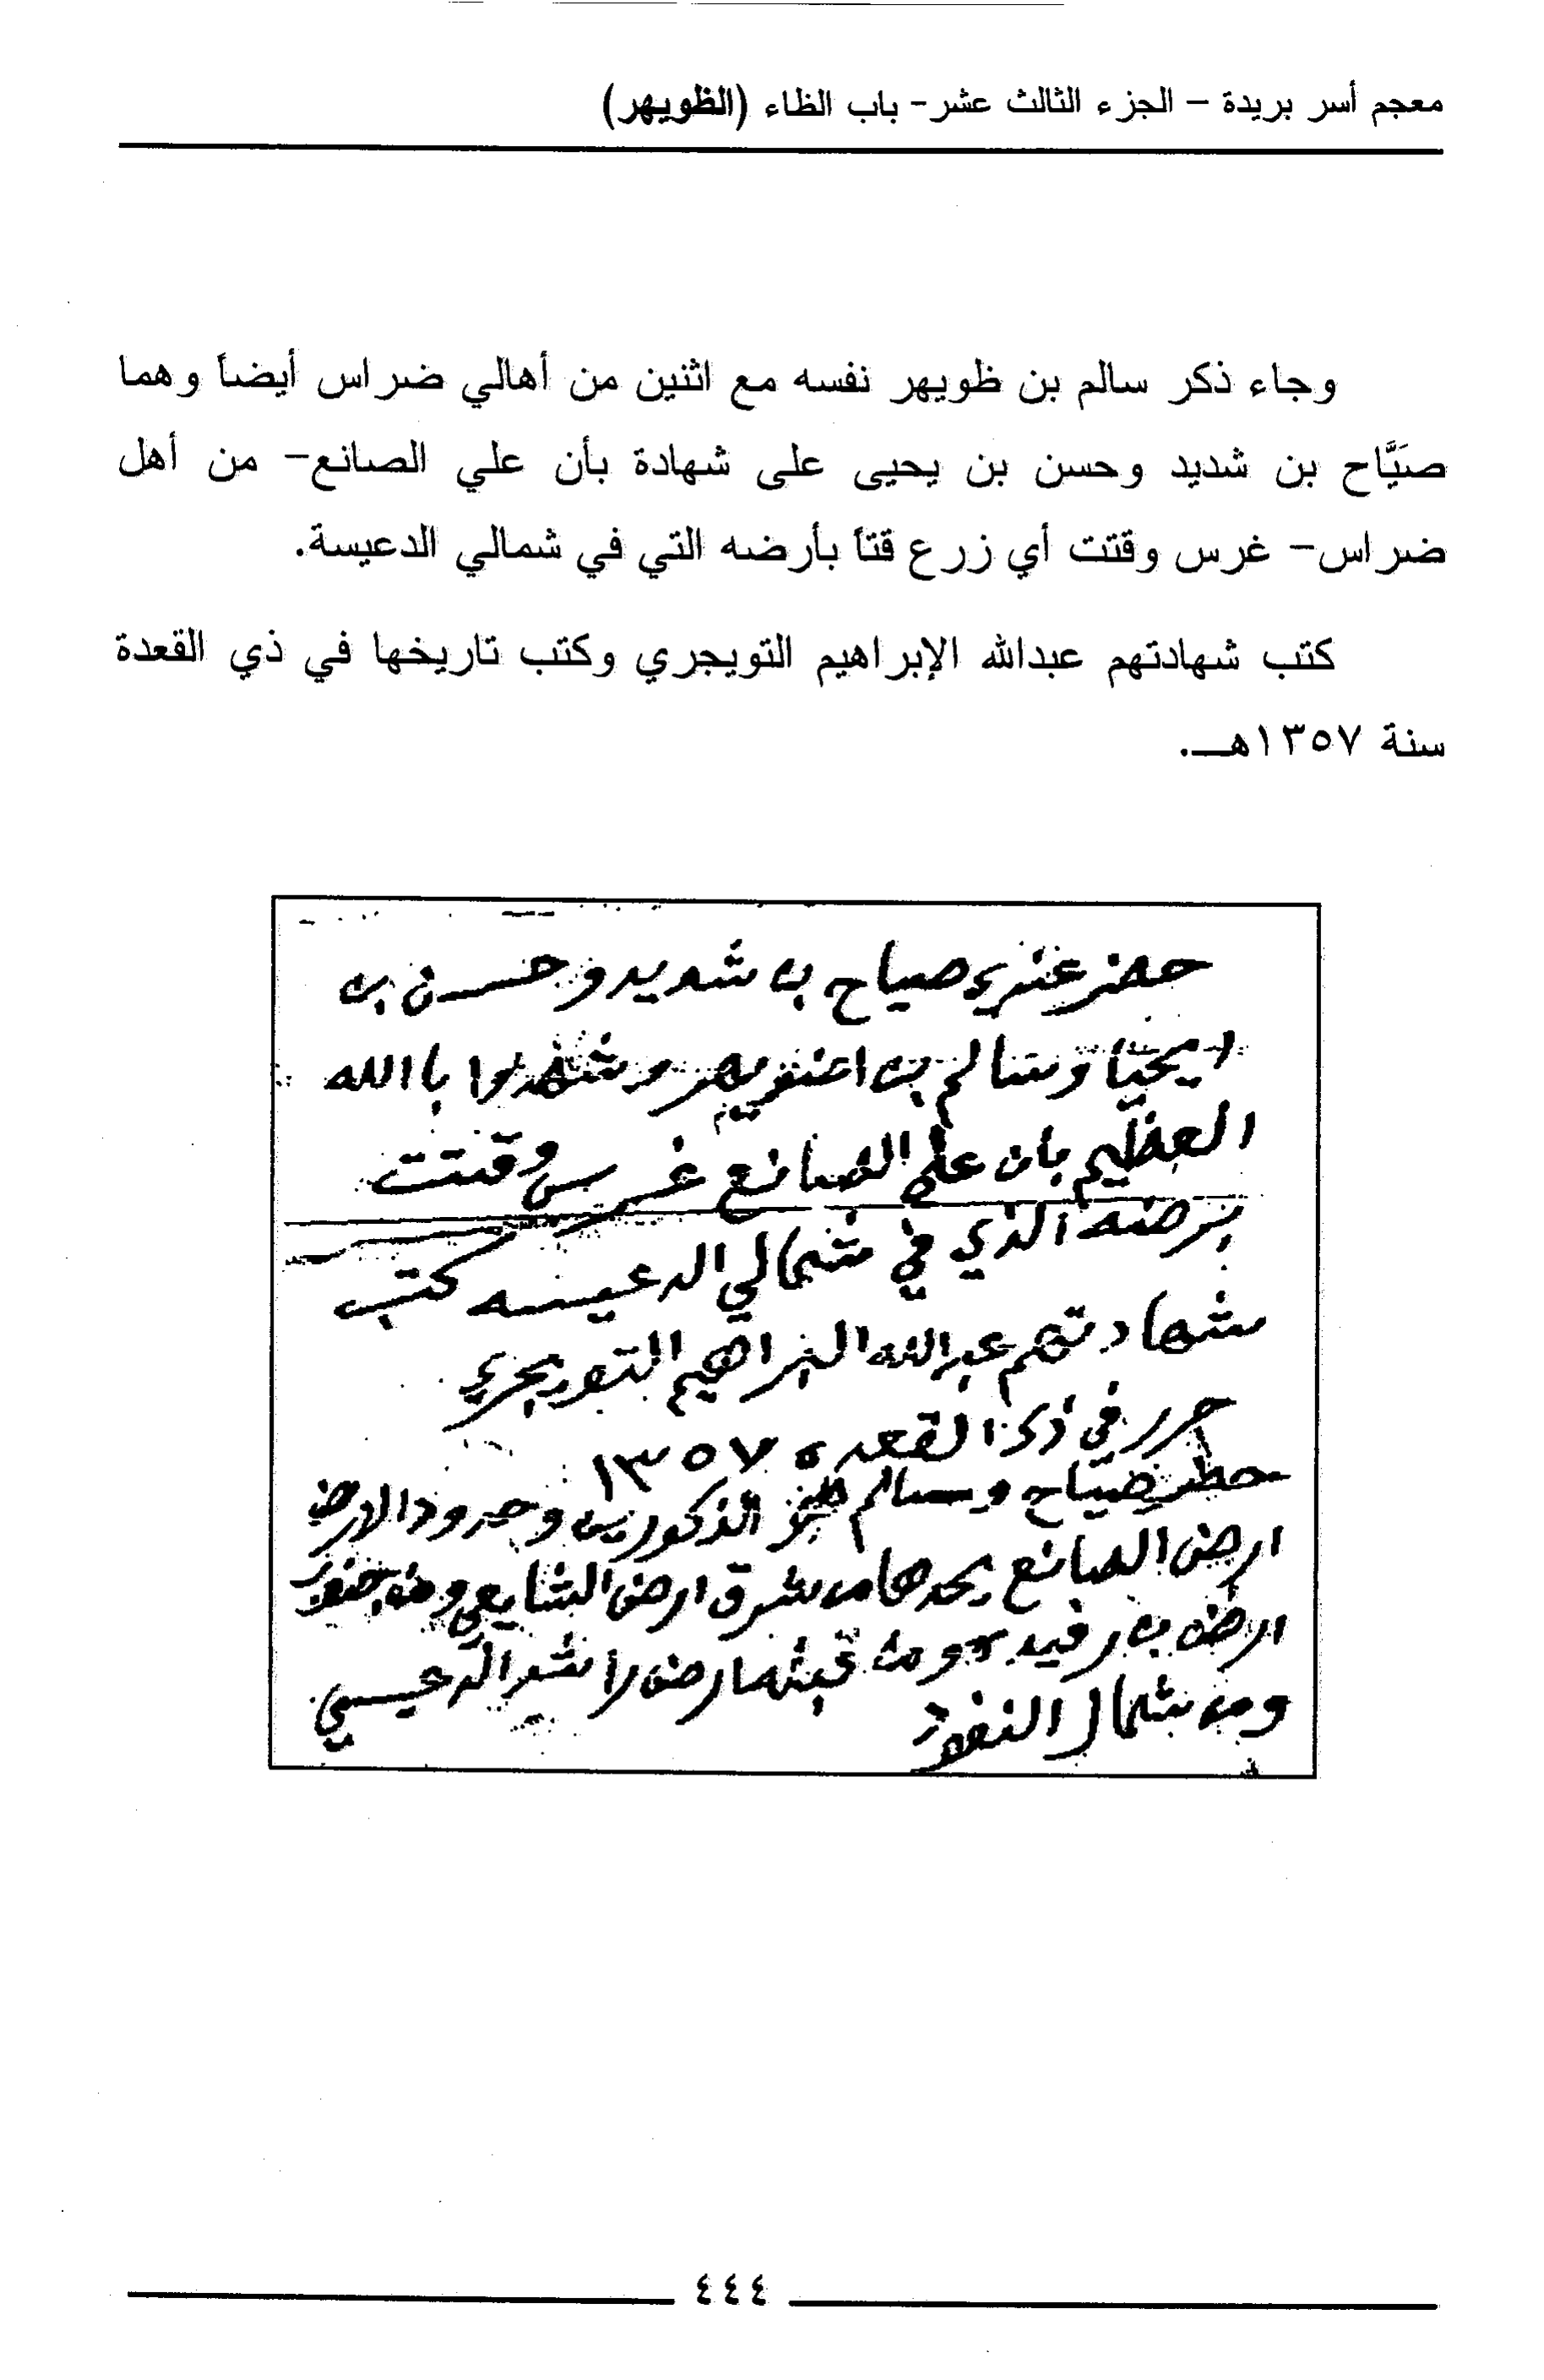 معجم أسر بريدة – الجزء الثالث عشر – باب الظاء (الظويهر)
وجاء ذكر سالم بن ظويهر نفسه مع اثنين من أهالي ضراس أيضاً وهما
صيَّاح بن شديد وحسن بن يحيى على شهادة بأن علي الصانع – من أهل
ضراس – غرس وقتت أي زرع قتاً بأرضه التي في شمالي الدعيسة.
كتب شهادتهم عبدالله الإبراهيم التويجري وكتب تاريخها في ذي القعدة
سنة ١٣٥٧هـ.
حضر عندي صياح بن شديد وحسن بن
يحيا وسالم بن اضويهر وشهدوا باالله
العظيم بان علي الصانع غرس وقتت
برضه الذي في شمالي الدعيسه كتب
شهادتهم عبدالله البراهيم التويجري
حرر في ذى القعده ١٣٥٧
حطر صياح وسالم المذكورين وحدود الارض
ارض الصانع يحدها من شرق ارض الشايعي ومن جنوب
ارض بن رفيد ومن ارض راشد الدعيسي
ومن شمال النفود
٤٤٤